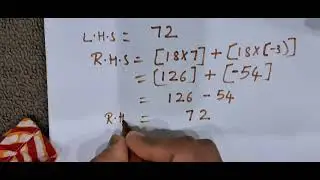 L.H.S = 72
R.H.S = [18×7] + [18×(-3)]
= [126] + [-54]
= 126 - 54
R.H = 72